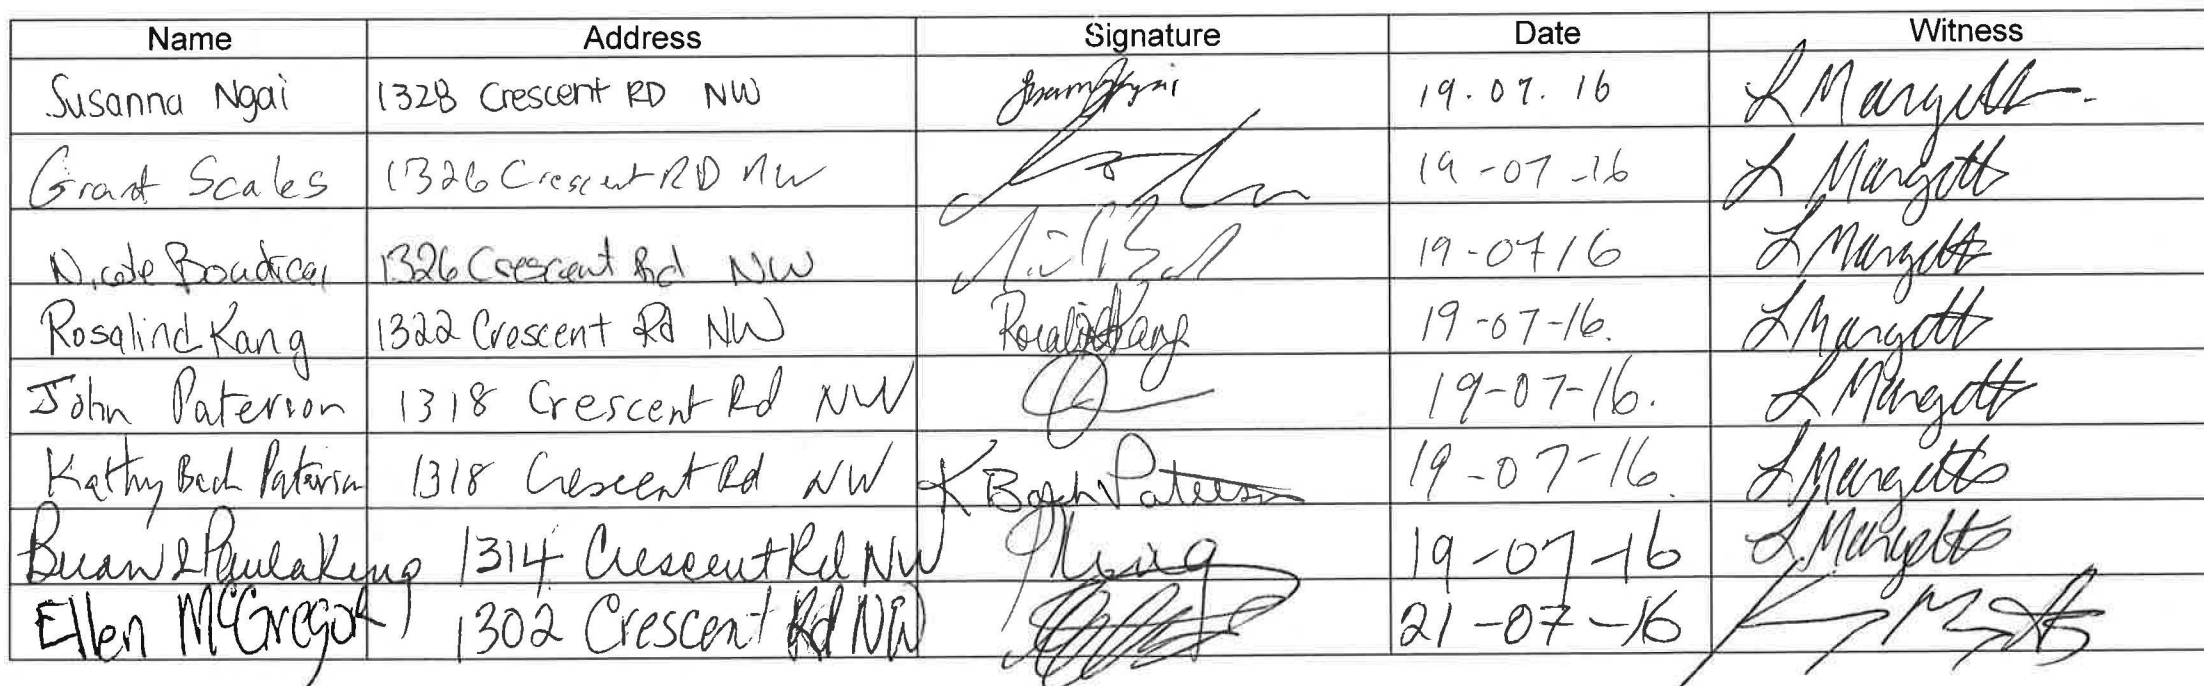 Name Address Signature Date Witness
Susanna Ngai 1328 Crescent RD NW 19.07.16 L Margetts
Grant Scales 1326 Crescent RD NW 19-07-16 L Margetts
Nicole Boudreau 1326 Crescent Rd NW 19-07 16 L Margetts
Rosalind Kang 1322 Crescent Rd NW Rosalind Kang 19-07-16. L Margetts
John Paterson 1318 Crescent Rd NW 19-07-16. L Margetts
Kathy Bach Paterson 1318 Crescent Rd NW K Bach Paterson 19-07-16. L Margetts
Brian & Paula King 1314 Crescent Rd NW PKing 19-07-16 L Margetts
Ellen McGregor 1302 Crescent Rd NW 21-07-16